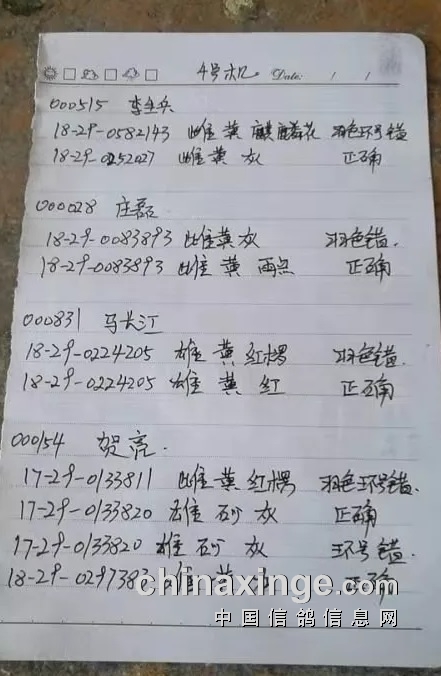 4号机 Date: / /
000515 李生兵
18-29-0582143 雌 黄 麒麟花 羽色环号错
18-29-0252027 雌 黄 灰 正确
000028 庄磊
18-29-0083893 雌 黄 灰 羽色错.
18-29-0083893 雌 黄 雨点 正确
000831 马长江
18-29-0224205 雄 黄 红楞 羽色错.
18-29-0224205 雄 黄 红 正确
000154 贺亮.
17-29-0133811 雌 黄 红楞 羽色环号错.
17-29-0133820 雄 砂 灰 正确
17-29-0133820 雄 砂 灰 环号错.
18-29-0297383 黄 正确
chinaxinge.com
中国信鸽信息网